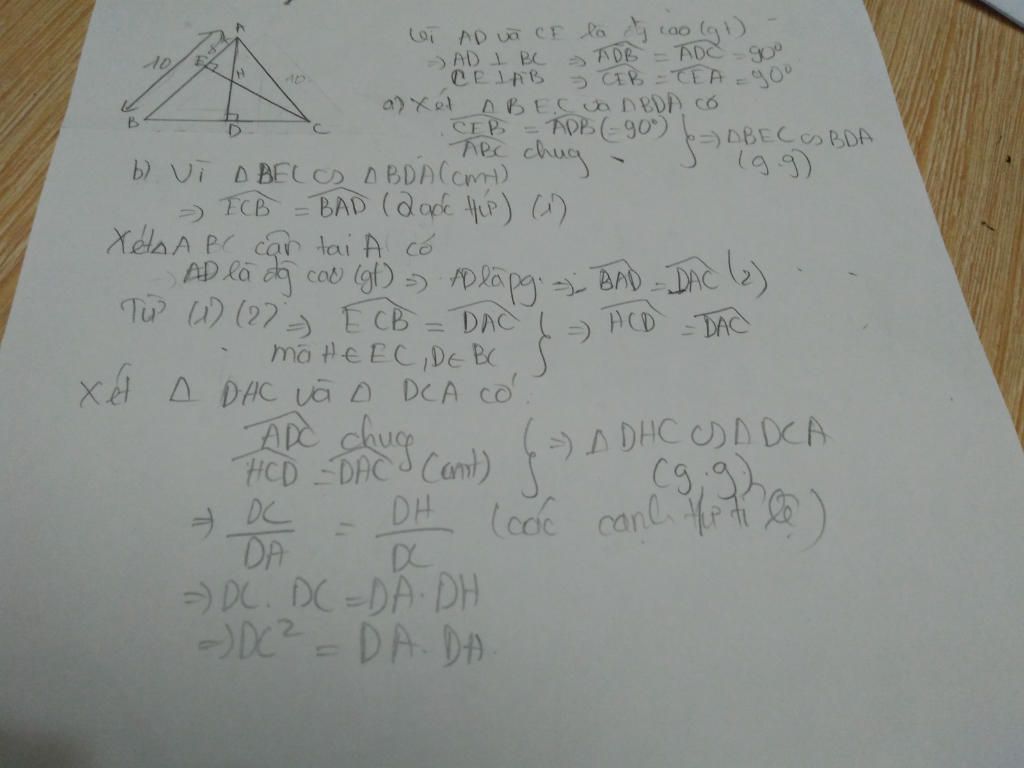 A
10
8
E
2
H
10
B
D
C
Vì AD và CE là đg cao (gt)
⇒ AD ⊥ BC ⇒ \widehat{ADB} = \widehat{ADC} = 90°
CE ⊥ AB ⇒ \widehat{CEB} = \widehat{CEA} = 90°
a) Xét ΔBEC và ΔBDA có
\widehat{CEB} = \widehat{ADB} (=90°) } ⇒ ΔBEC ∽ BDA
\widehat{ABC} chug (g.g)
b) Vì ΔBEC ∽ ΔBDA (cmt)
⇒ \widehat{ECB} = \widehat{BAD} (2 góc tư) (1)
Xét Δ ABC cân tại A có
AD là đg cao (gt) ⇒ AD là pg ⇒ \widehat{BAD} = \widehat{DAC} (2)
Từ (1) (2) ⇒ \widehat{ECB} = \widehat{DAC} } ⇒ \widehat{HCD} = \widehat{DAC}
mà H ∈ EC, D ∈ BC
Xét Δ DHC và Δ DCA có:
\widehat{ADC} chug } ⇒ Δ DHC ∽ Δ DCA
\widehat{HCD} = \widehat{DAC} (cmt) (g.g)
⇒ DC/DA = DH/DC (các cạnh tư tỉ lệ)
⇒ DC . DC = DA . DH
⇒ DC² = DA . DA.